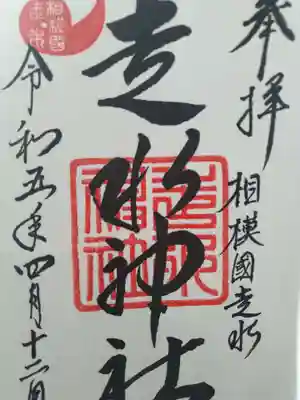 奉拝
相模國走水
走水神社
走水神社
令和五年四月十二日